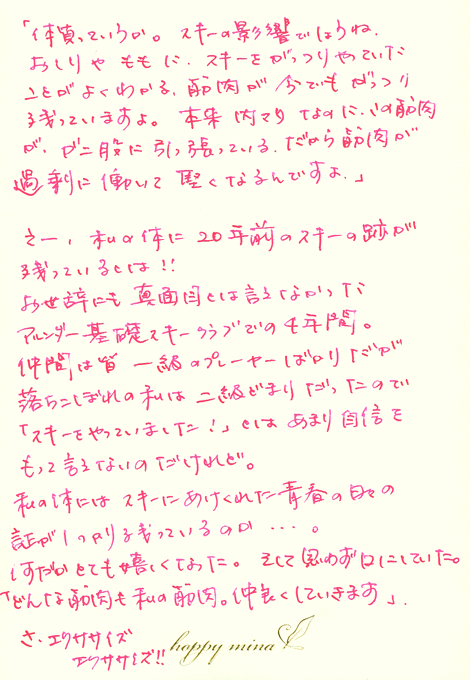 「体質っていうか。スキーの影響でしょうね。
おしりや ももに、スキーをがっつりやっていた
ことが よくわかる、筋肉が 今でも がっつり
残っていますよ。本来 内マタ なのに、この筋肉
が、ガニ股に 引っ張っている。だから筋肉が
過剰に 働いて 堅くなるんですよ。」
えー、私の体に 20年前のスキーの跡が
残っているとは!!
お世辞にも 真面目とは言えなかった
アルペンダー基礎スキークラブでの4年間。
仲間は皆 一級のプレーヤーばかりだが
落ちこぼれの私は 二級どまりだったので
「スキーをやっていました!」とは あまり自信を
もって言えないのだけれど。
私の体には スキーにあけくれた青春の日々の
証が しっかり残っているのか・・・。
なんだかとても嬉しくなった。そして思わず口にしていた。
「どんな筋肉も私の筋肉。仲良くしていきます」.
さ、エクササイズ
エクササイズ!!
happy mina